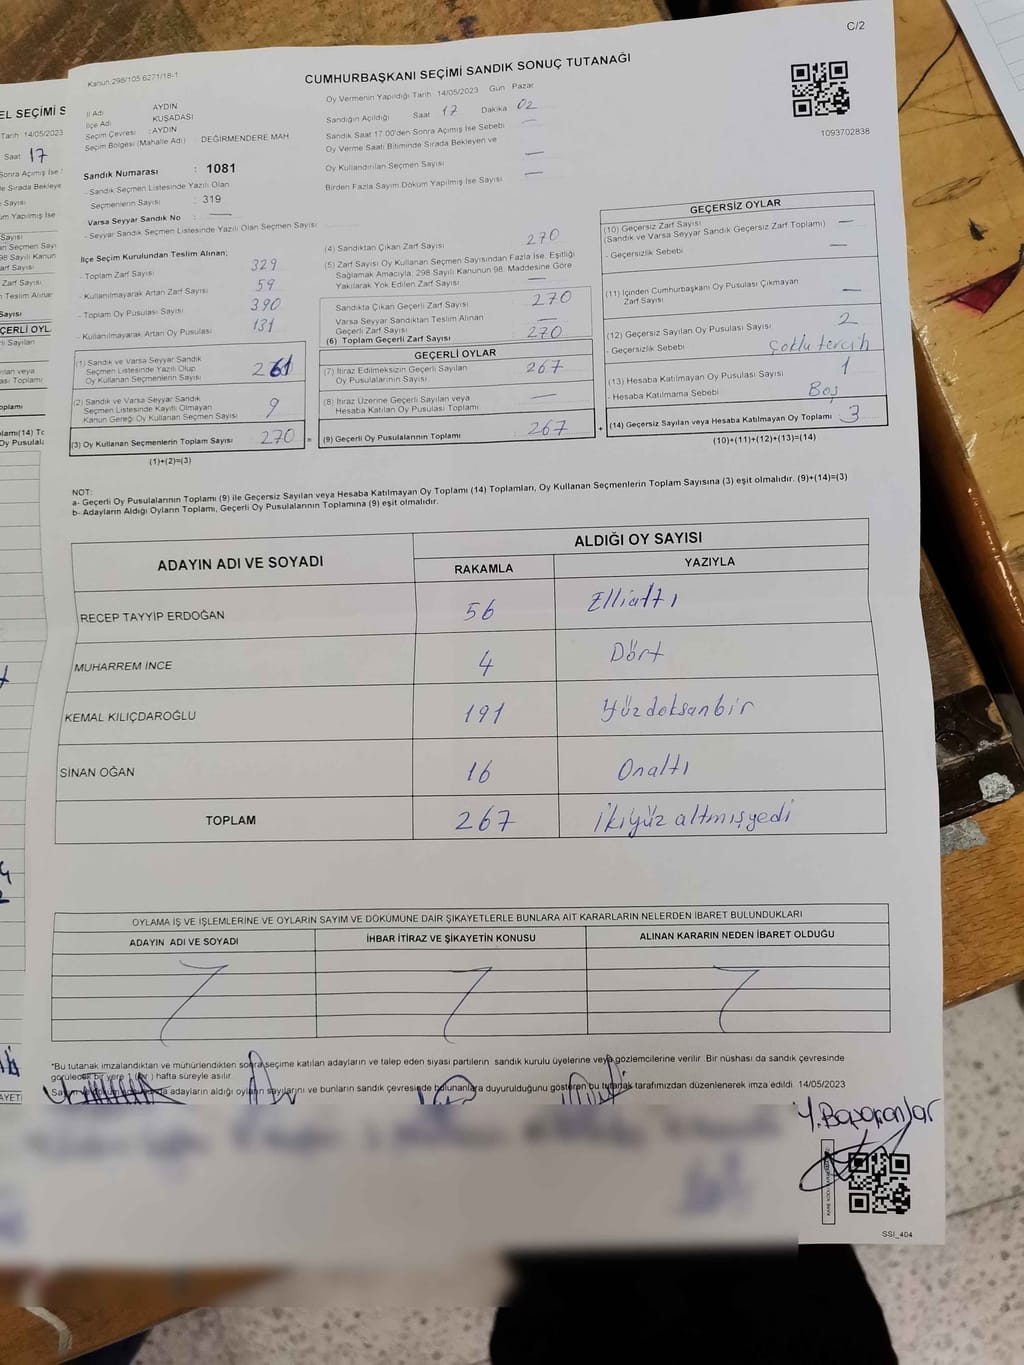 C/2
Kanun.298/105.6271/18-1
CUMHURBAŞKANI SEÇİMİ SANDIK SONUÇ TUTANAĞI
1093702838
İl Adı AYDIN
İlçe Adı KUŞADASI
Seçim Çevresi : AYDIN
Seçim Bölgesi (Mahalle Adı) DEĞİRMENDERE MAH.
Sandık Numarası : 1081
- Sandık Seçmen Listesinde Yazılı Olan
Seçmenlerin Sayısı : 319
Varsa Seyyar Sandık No : —
- Seyyar Sandık Seçmen Listesinde Yazılı Olan Seçmen Sayısı
Oy Vermenin Yapıldığı Tarih 14/05/2023 Gün Pazar
Sandığın Açıldığı Saat 17 Dakika 02
Sandık Saat 17:00'den Sonra Açılmış İse Sebebi —
Oy Verme Saati Bitiminde Sırada Bekleyen ve
Oy Kullandırılan Seçmen Sayısı —
Birden Fazla Sayım Döküm Yapılmış İse Sayısı —
İlçe Seçim Kurulundan Teslim Alınan;
- Toplam Zarf Sayısı 329
- Kullanılmayarak Artan Zarf Sayısı 59
- Toplam Oy Pusulası Sayısı 390
- Kullanılmayarak Artan Oy Pusulası 131
(1) Sandık ve Varsa Seyyar Sandık
Seçmen Listesinde Yazılı Olup
Oy Kullanan Seçmenlerin Sayısı 261
(2) Sandık ve Varsa Seyyar Sandık
Seçmen Listesinde Kayıtlı Olmayan
Kanun Gereği Oy Kullanan Seçmen Sayısı 9
(3) Oy Kullanan Seçmenlerin Toplam Sayısı 270 =
(1)+(2)=(3)
(4) Sandıktan Çıkan Zarf Sayısı 270
(5) Zarf Sayısı Oy Kullanan Seçmen Sayısından Fazla İse, Eşitliği
Sağlamak Amacıyla, 298 Sayılı Kanunun 98. Maddesine Göre
Yakılarak Yok Edilen Zarf Sayısı —
Sandıkta Çıkan Geçerli Zarf Sayısı 270
Varsa Seyyar Sandıktan Teslim Alınan
Geçerli Zarf Sayısı —
(6) Toplam Geçerli Zarf Sayısı 270
GEÇERLİ OYLAR
(7) İtiraz Edilmeksizin Geçerli Sayılan
Oy Pusulalarının Sayısı 267
(8) İtiraz Üzerine Geçerli Sayılan veya
Hesaba Katılan Oy Pusulası Toplamı —
(9) Geçerli Oy Pusulalarının Toplamı 267 +
GEÇERSİZ OYLAR
(10) Geçersiz Zarf Sayısı —
(Sandık ve Varsa Seyyar Sandık Geçersiz Zarf Toplamı)
- Geçersizlik Sebebi —
(11) İçinden Cumhurbaşkanı Oy Pusulası Çıkmayan
Zarf Sayısı —
(12) Geçersiz Sayılan Oy Pusulası Sayısı 2
- Geçersizlik Sebebi çoklu tercih
(13) Hesaba Katılmayan Oy Pusulası Sayısı 1
- Hesaba Katılmama Sebebi Boş
(14) Geçersiz Sayılan veya Hesaba Katılmayan Oy Toplamı 3
(10)+(11)+(12)+(13)=(14)
NOT:
a- Geçerli Oy Pusulalarının Toplamı (9) ile Geçersiz Sayılan veya Hesaba Katılmayan Oy Toplamı (14) Toplamları, Oy Kullanan Seçmenlerin Toplam Sayısına (3) eşit olmalıdır. (9)+(14)=(3)
b- Adayların Aldığı Oyların Toplamı, Geçerli Oy Pusulalarının Toplamına (9) eşit olmalıdır.
ADAYIN ADI VE SOYADI ALDIĞI OY SAYISI
RAKAMLA YAZIYLA
RECEP TAYYİP ERDOĞAN 56 Elliatı
MUHARREM İNCE 4 Dört
KEMAL KILIÇDAROĞLU 191 Yüzdoksanbir
SİNAN OĞAN 16 Onaltı
TOPLAM 267 ikiyüz altmışyedi
OYLAMA İŞ VE İŞLEMLERİNE VE OYLARIN SAYIM VE DÖKÜMÜNE DAİR ŞİKAYETLERLE BUNLARA AİT KARARLARIN NELERDEN İBARET BULUNDUKLARI
ADAYIN ADI VE SOYADI İHBAR İTİRAZ VE ŞİKAYETİN KONUSU ALINAN KARARIN NEDEN İBARET OLDUĞU
*Bu tutanak imzalandıktan ve mühürlendikten sonra seçime katılan adayların ve talep eden siyasi partilerin sandık kurulu üyelerine veya gözlemcilerine verilir. Bir nüshası da sandık çevresinde
görülecek bir yere 1 (bir) hafta süreyle asılır.
adayların aldığı oyların sayılarını ve bunların sandık çevresinde bulunanlara duyurulduğunu gösteren bu tutanak tarafımızdan düzenlenerek imza edildi. 14/05/2023
Y. Başaranlar
SSI_404